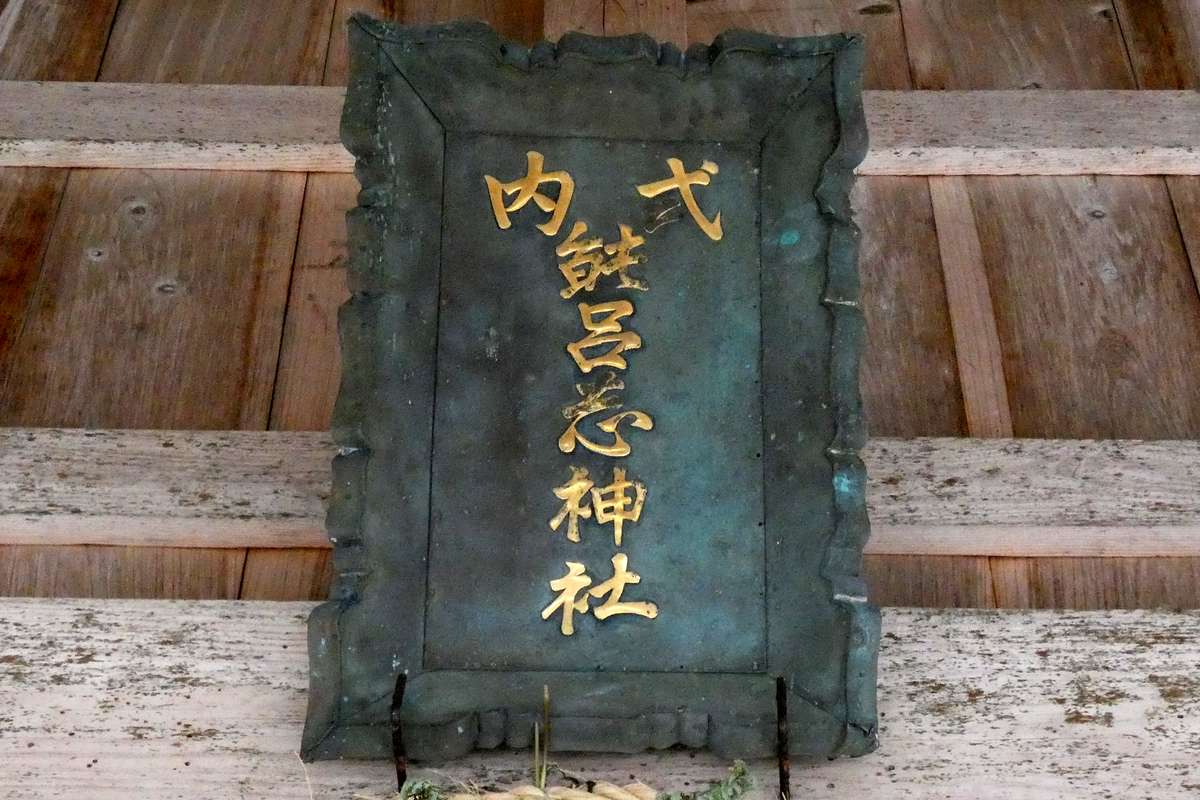 式内
能呂志神社